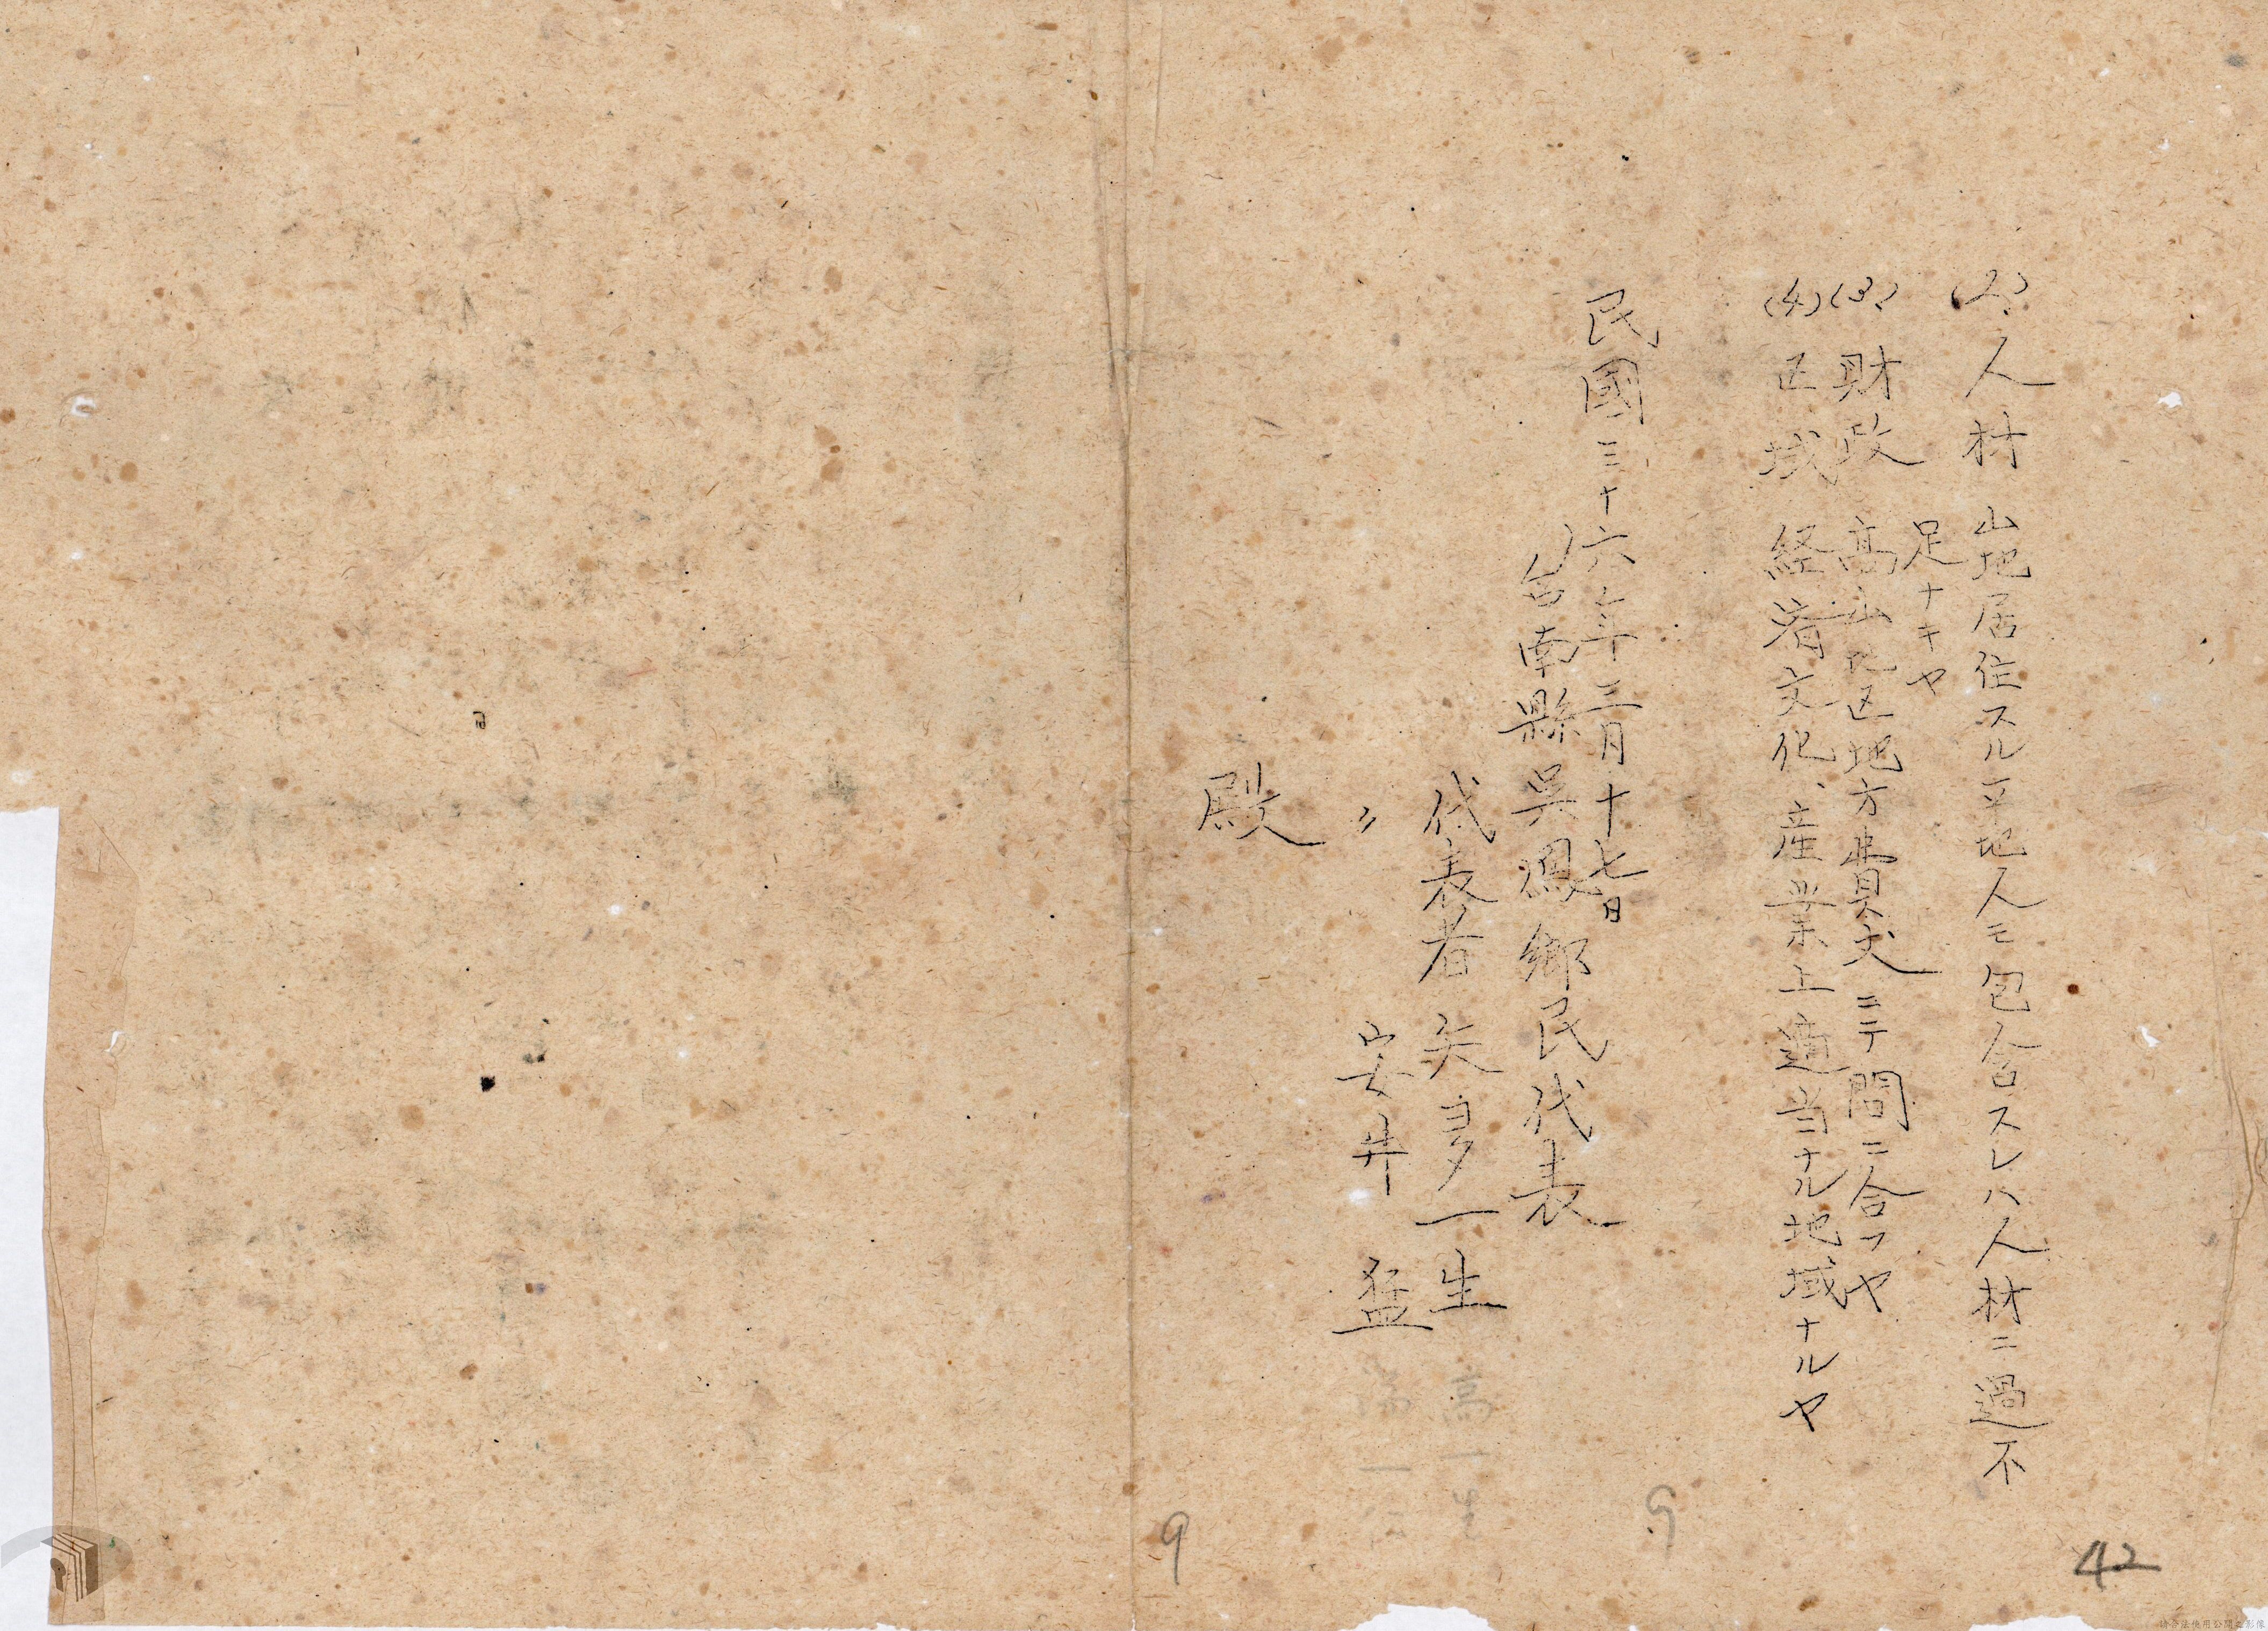 (2) 人材 山地居住スル平地人モ包含スレハ人材ニ過不
足ナキヤ
(3) 財政 高山地区地方費丈ニテ間ニ合フヤ
(4) 区域 経済文化、産業上適当ナル地域ナルヤ
民國三十六年三月十七日
台南縣吳鳳鄉民代表
代表者 矢多一生
高一生
〃 安井 猛
殿
9
9
42